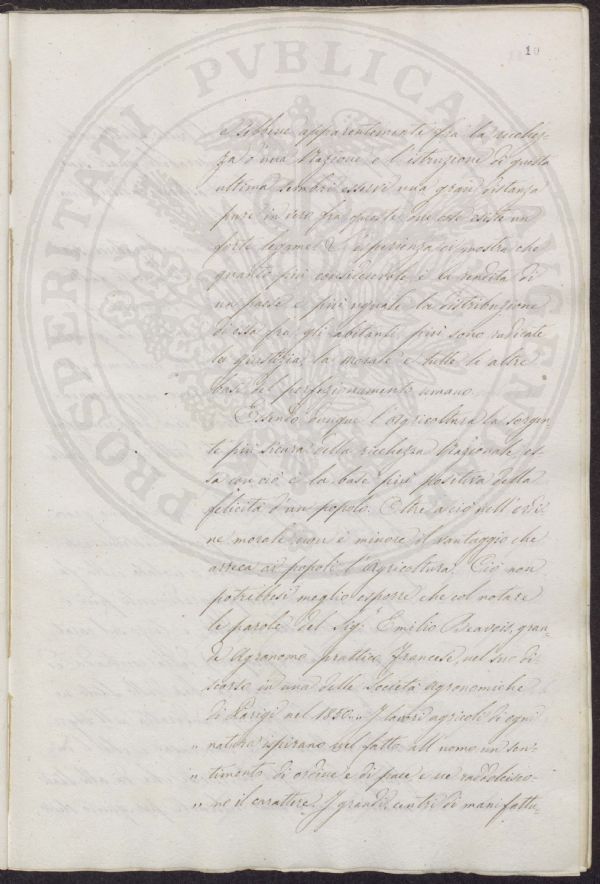 10
PROSPERITATI PVBLICAE AVGENDAE
e sebbene apparentemente fra la ricchez-
za d'una Nazione e l'istruzione di questa
ultima sembri esservi una gran distanza
pure in vero fra queste due cose esiste un
forte legame. L'esperienza ci mostra che
quanto più considerevole è la rendita di
un paese e più uguale la distribuzione
di essa fra gli abitanti più sono radicate
la giustizia, la morale e tutte le altre
basi del perfezionamento umano.
Essendo dunque l'Agricoltura la sorgen-
te più sicura della ricchezza Nazionale, es-
sa con ciò è la base più positiva della
felicità d'un popolo. Oltre a ciò nell'ordi-
ne morale non è minore il vantaggio che
arreca ai popoli l'Agricoltura. Ciò non
potrebbesi meglio esporre che col notare
le parole del Sig. Emilio Beavois, gran-
de Agronomo prattico Francese, nel suo di-
scorso in una delle Società Agronomiche
di Parigi nel 1850. „ I lavori agricoli di ogni
„ natura ispirano nel fatto all'uomo un sen-
„ timento di ordine e di pace e ne raddolcisco-
„ no il carattere. I grandi centri di manifattu-